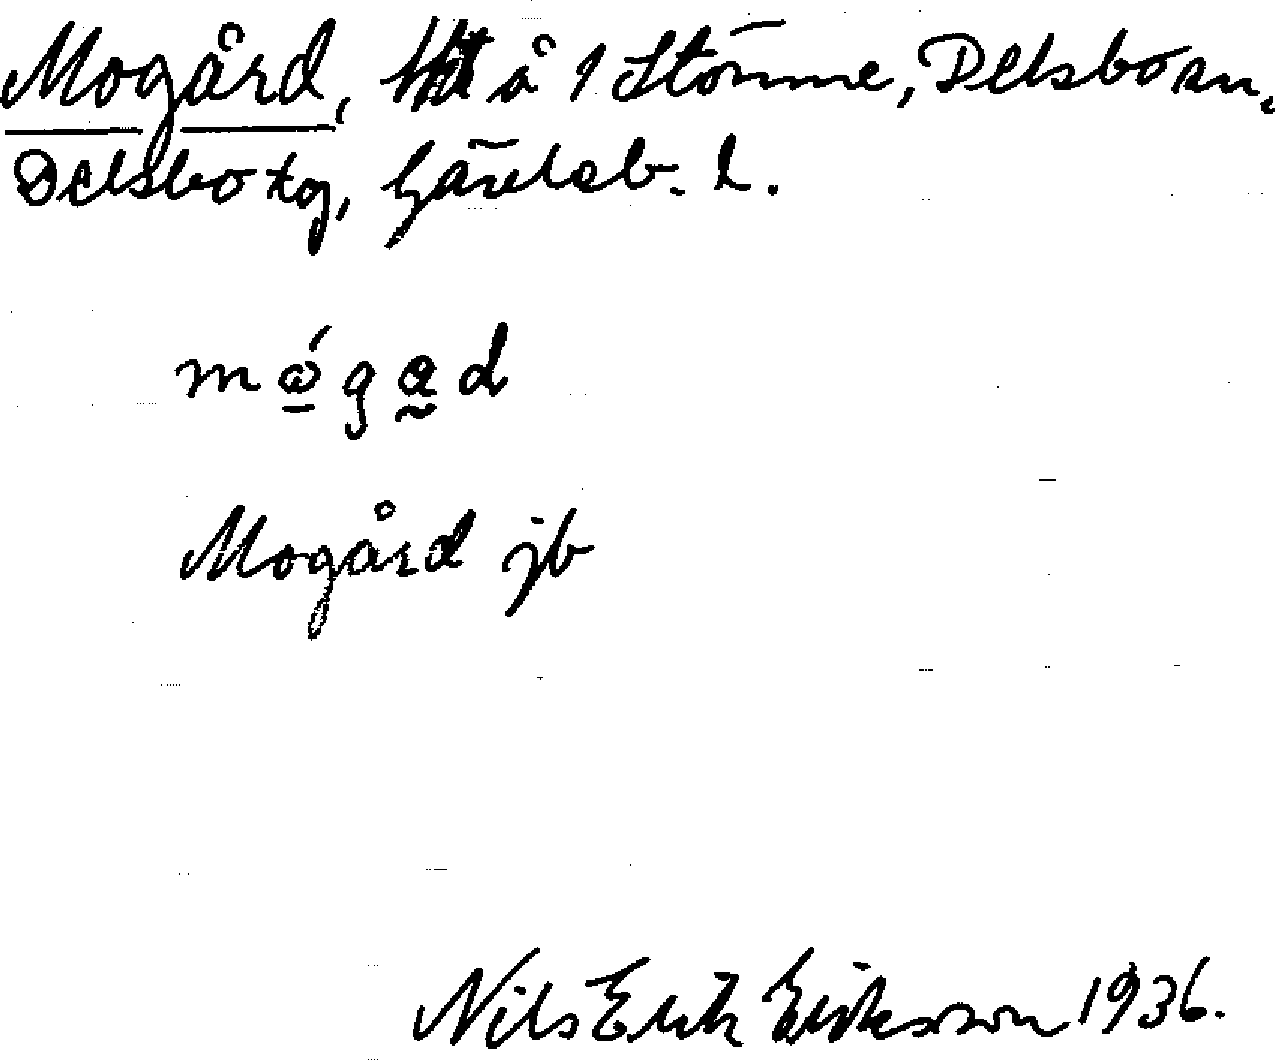 Mogård, å 1 Stömne, Delsbo sn,
Delsbo tg, Gävleb. l.
mǿgad
Mogård jb
Nils Erik Eriksson 1936.